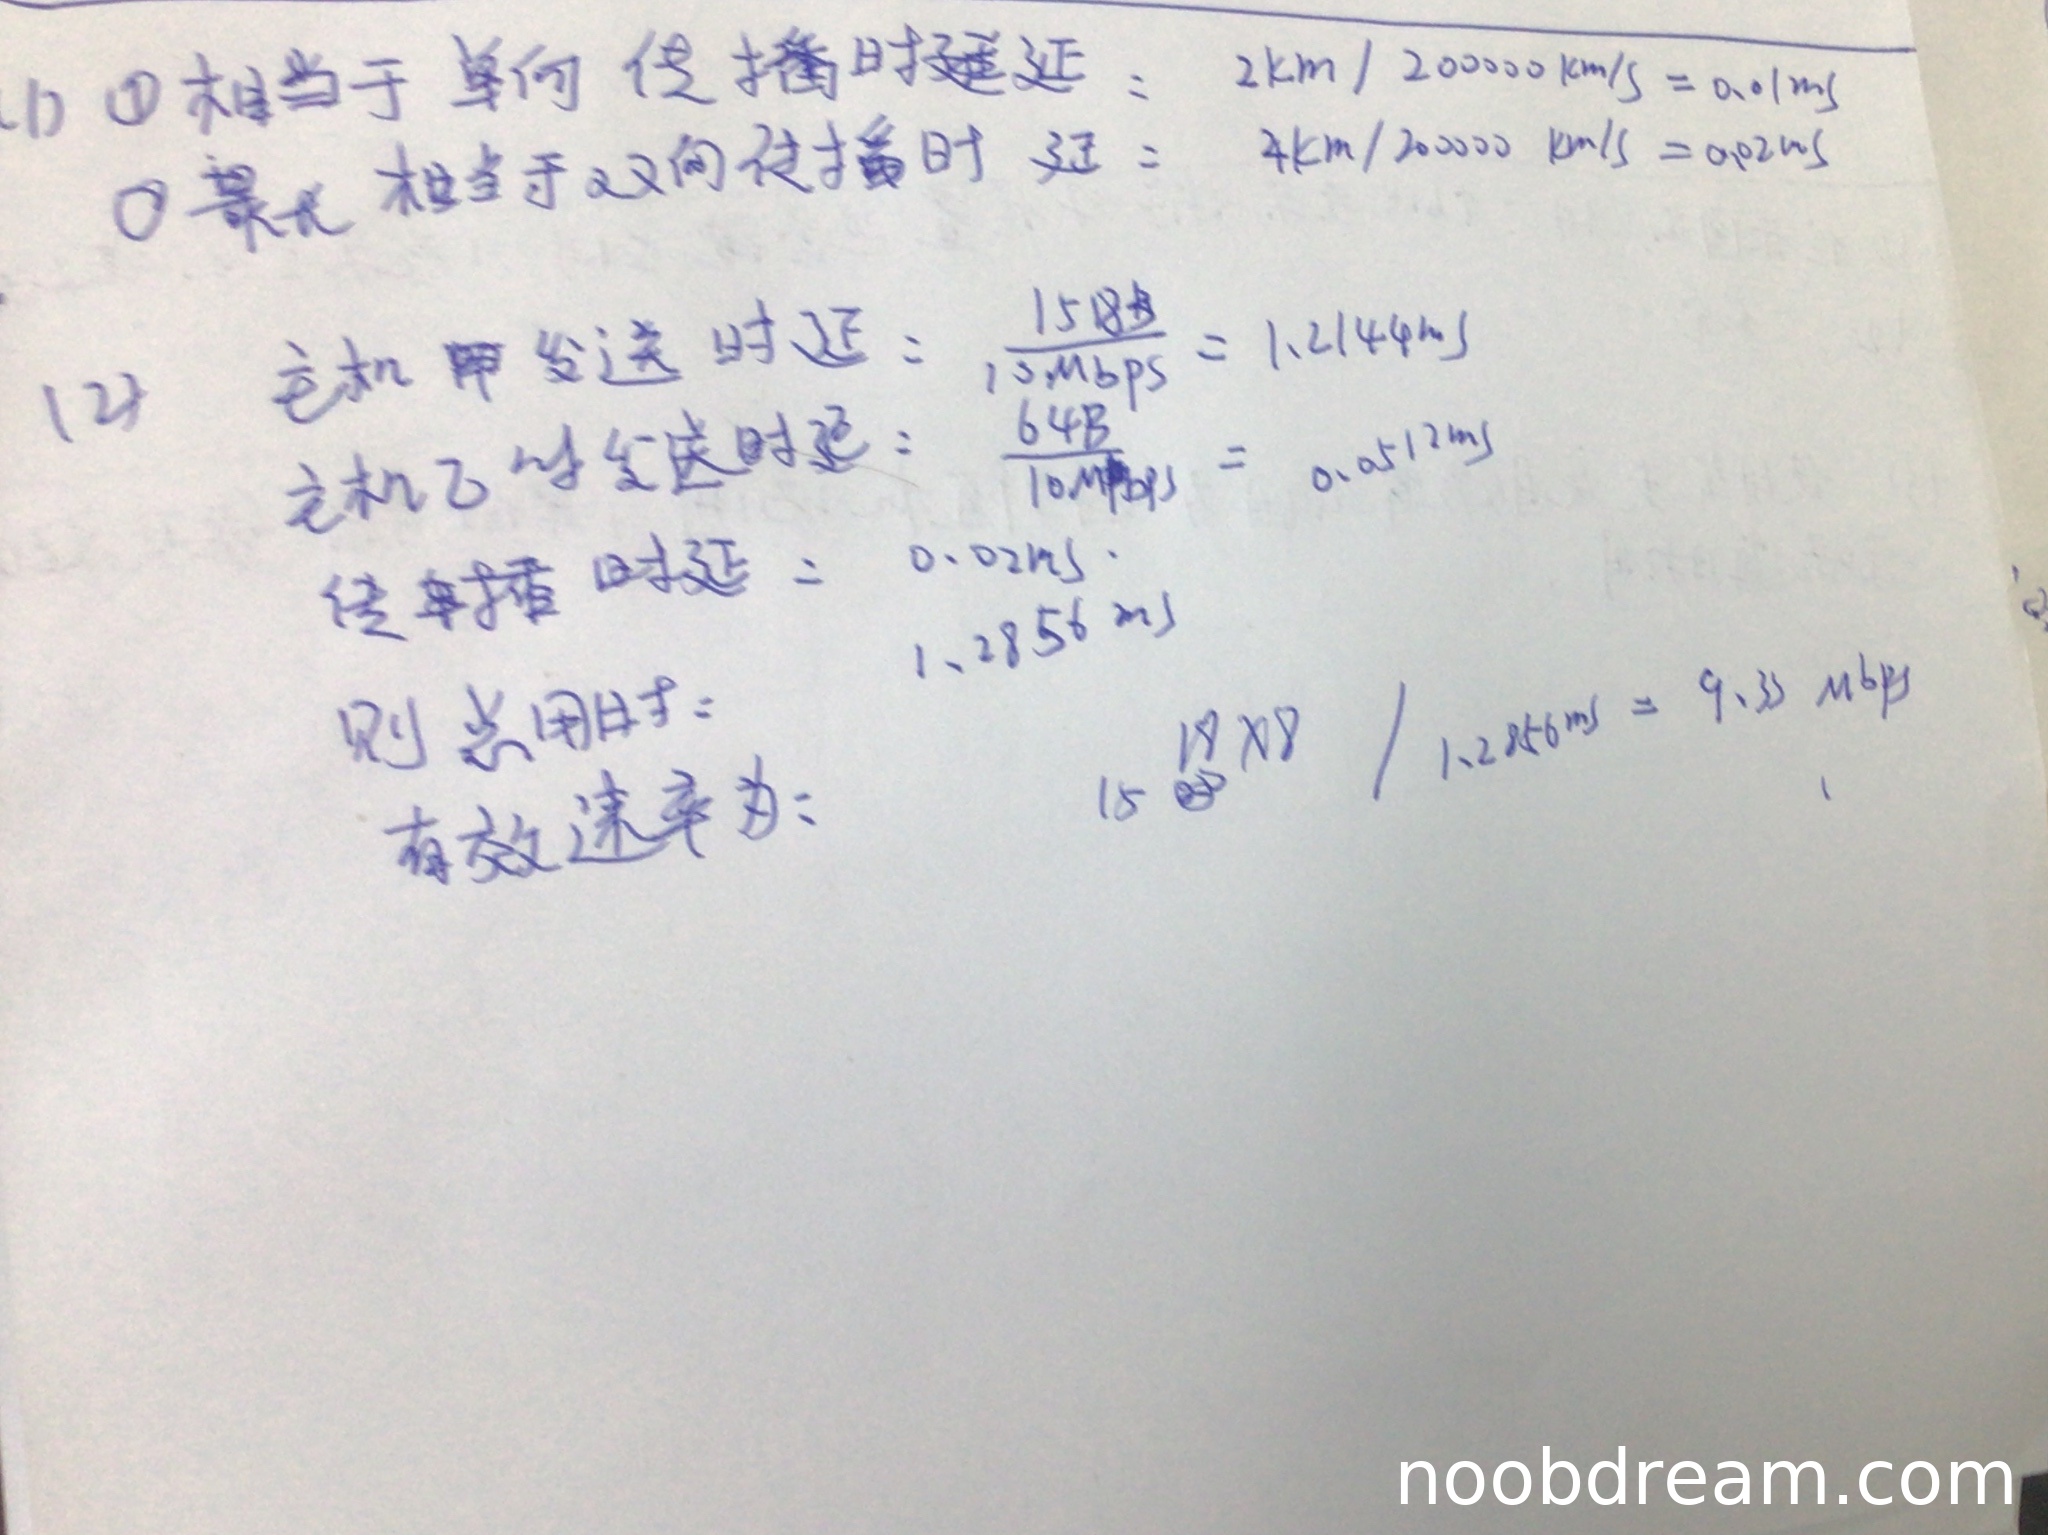 (1) ① 相当于 单向 传播时延 : 2km / 200000km/s = 0.01ms
相当于双向传播时延 : 4km / 200000 km/s = 0.02ms
(2) 主机甲发送时延 : 1518B / 10Mbps = 1.2144ms
主机乙发送时延 : 64B / 10Mbps = 0.0512ms
传播时延 = 0.02ms.
则总用时: 1.2856ms
有效速率为: 1518×8 / 1.2856ms = 9.33 Mbps
noobdream.com